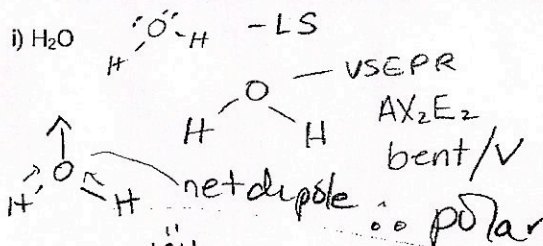 i) H₂O
:Ö: - LS
H H
O — VSEPR
H H
AX₂E₂
bent/V
O
H H
net dipole ∴ polar